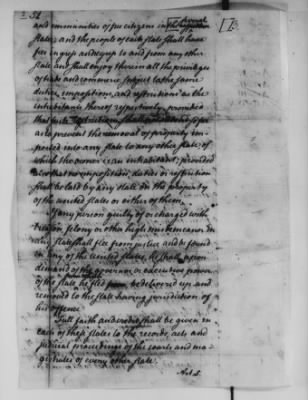 and immunities of free citizens in the several
states; and the people of each state shall have
free ingress and regress to and from any other
state and shall enjoy therein all the privileges
of trade and commerce subject to the same
duties, impositions, and restrictions as the
inhabitants thereof respectively, provided
that such restrictions shall not extend so far
as to prevent the removal of property im-
ported into any state to any other state; of
which the owner is an inhabitant; provided
also that no imposition, duties or restriction
shall be laid by any state on the property
of the united states or either of them.
If any person guilty of or charged with
treason felony or other high misdemeanor in
any state shall flee from justice and be found
in any of the united states, he shall upon
demand of the governor or executive power
of the state he fled from, be delivered up and
removed to the state having jurisdiction of
his offence.
Full faith and credit shall be given in
each of these states to the records, acts and
judicial proceedings of the courts and ma-
gistrates of every other state.
Art. 5.